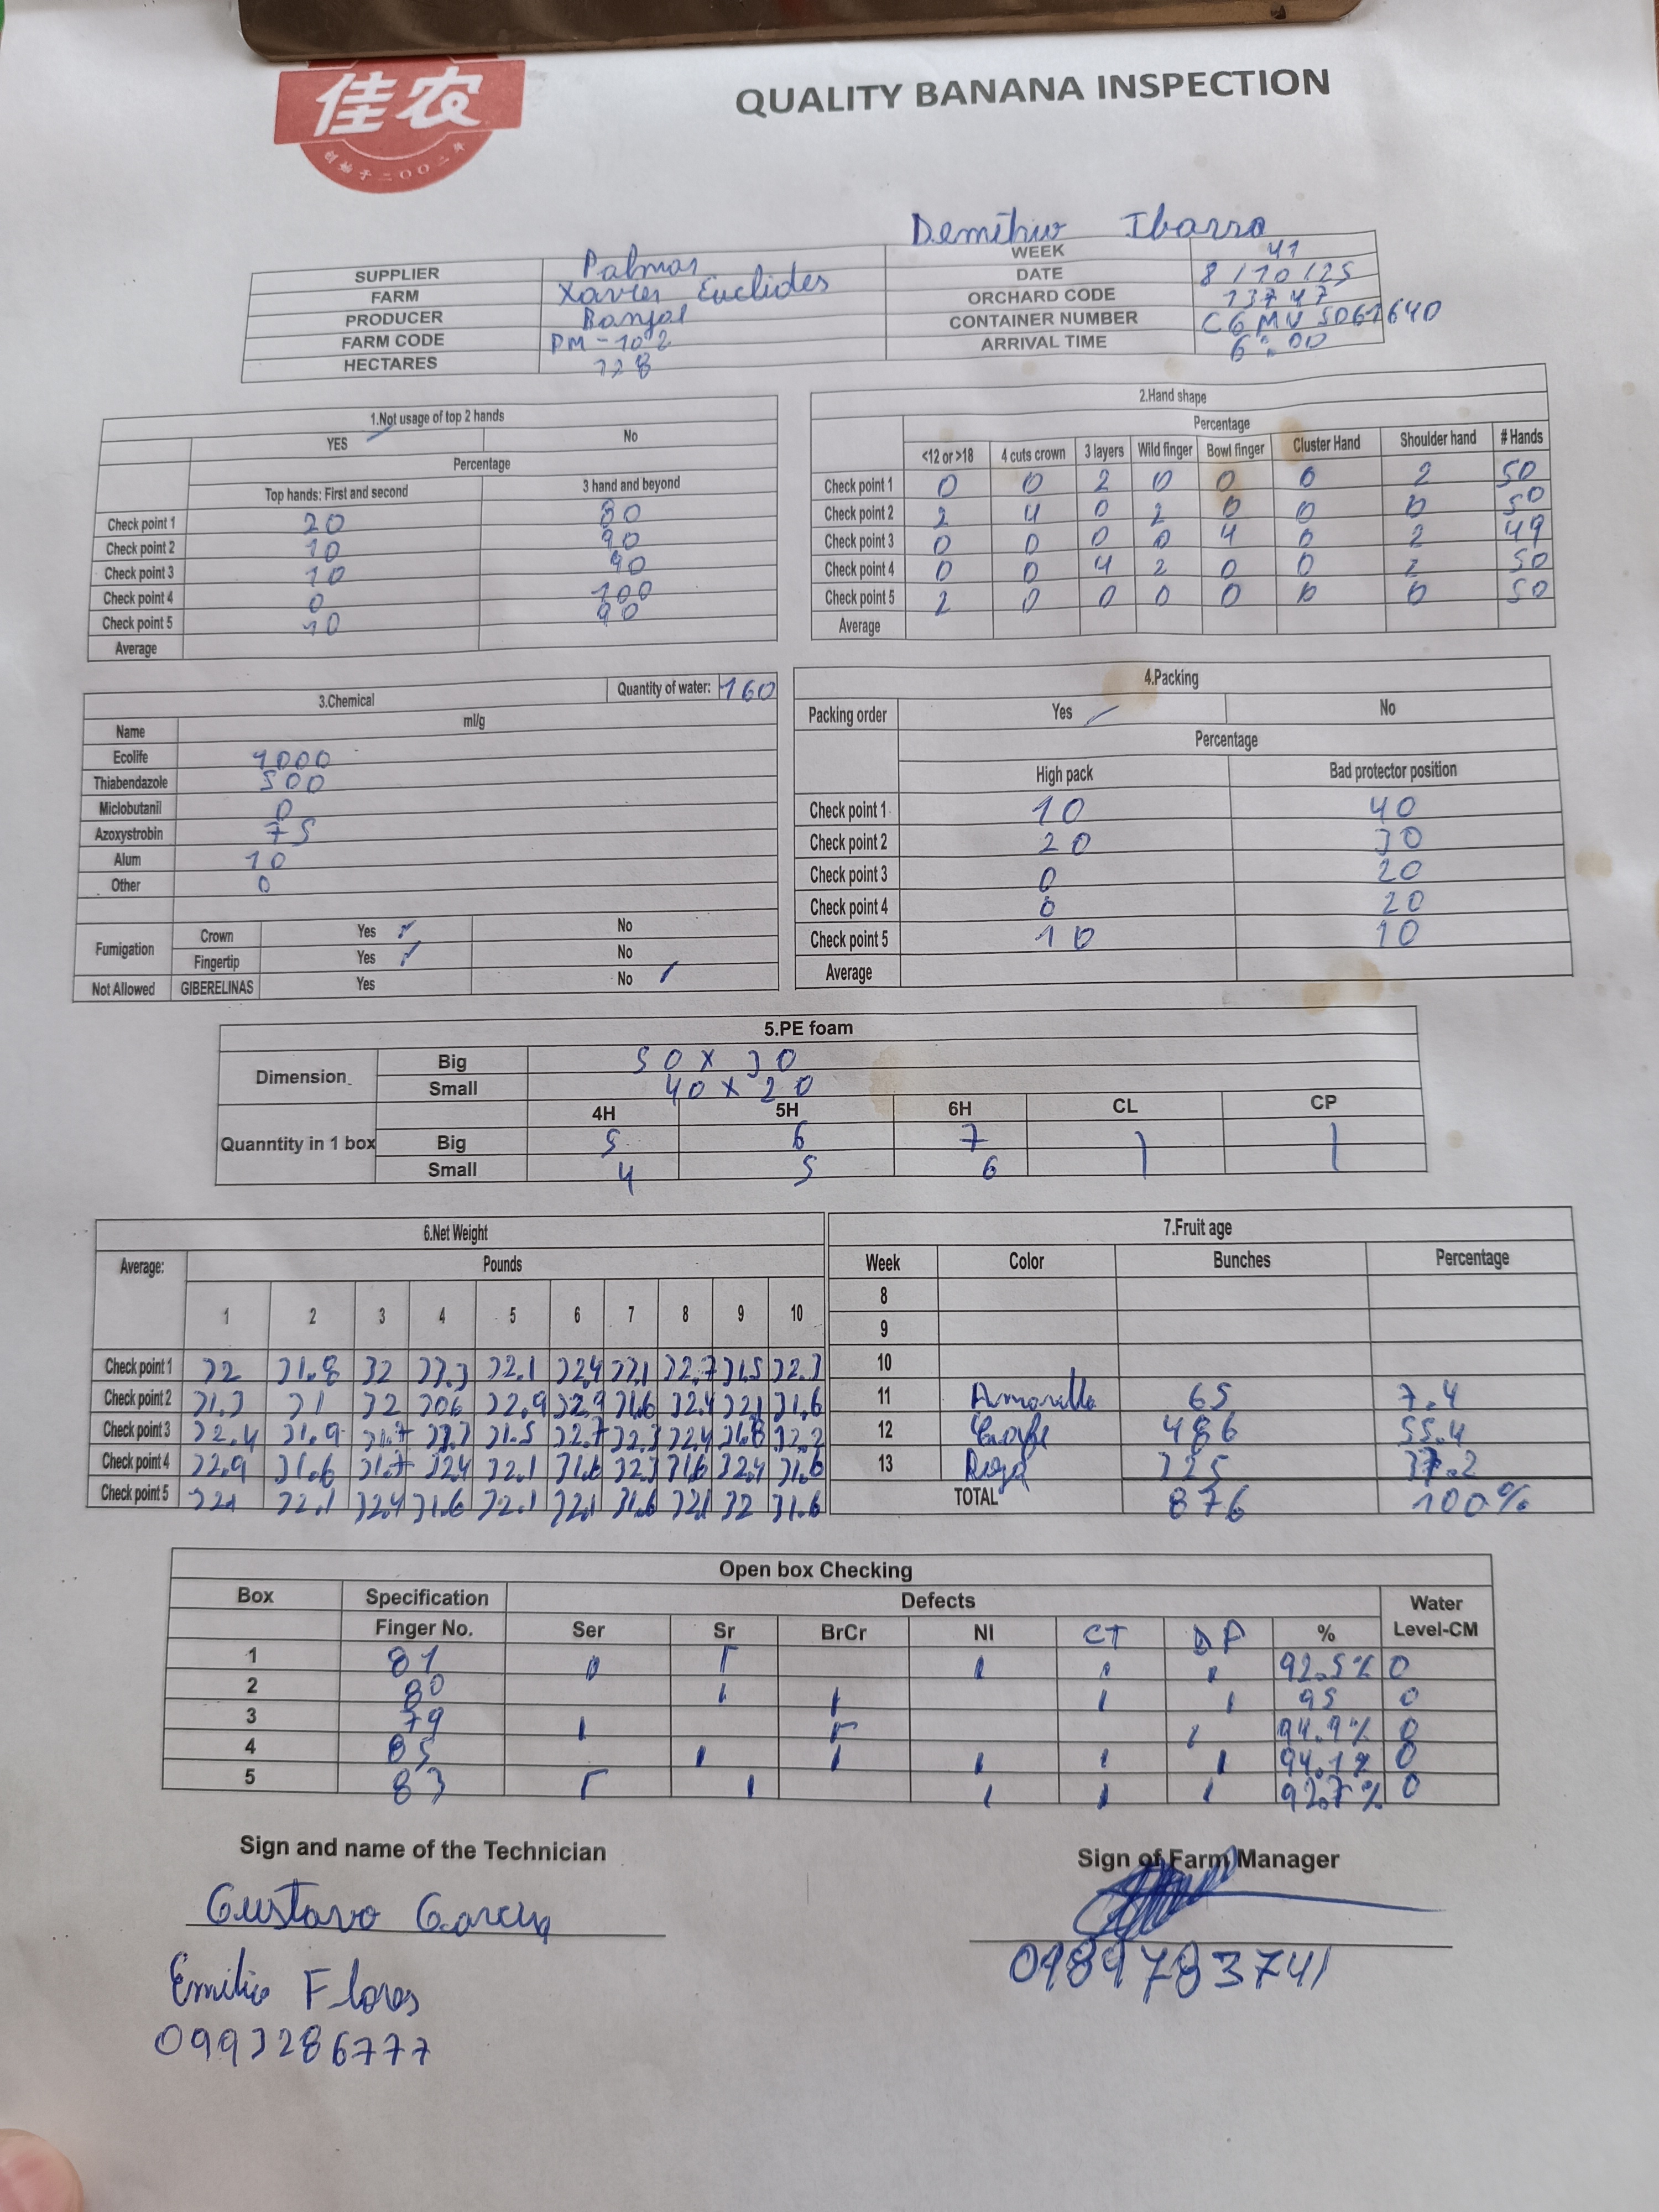 佳农
创始于二〇〇二年
QUALITY BANANA INSPECTION
Demitrio Ibarra
SUPPLIER Palmar WEEK 41
FARM Xavier Euclides DATE 8/10/25
PRODUCER Banjal ORCHARD CODE 13747
FARM CODE PM-102 CONTAINER NUMBER CGMU5061640
HECTARES 228 ARRIVAL TIME 6:00
1.Not usage of top 2 hands
YES No
Percentage
Top hands: First and second 3 hand and beyond
Check point 1 20 80
Check point 2 10 90
Check point 3 10 90
Check point 4 0 100
Check point 5 10 90
Average
2.Hand shape
Percentage
<12 or >18 4 cuts crown 3 layers Wild finger Bowl finger Cluster Hand Shoulder hand # Hands
Check point 1 0 0 2 0 0 0 2 50
Check point 2 2 4 0 2 0 0 0 50
Check point 3 0 0 0 0 4 0 2 49
Check point 4 0 0 4 2 0 0 2 50
Check point 5 2 0 0 0 0 0 0 50
Average
3.Chemical Quantity of water: 160
Name ml/g
Ecolife 1000
Thiabendazole 500
Miclobutanil 0
Azoxystrobin 75
Alum 10
Other 0
Fumigation Crown Yes ✓ No
Fingertip Yes ✓ No
Not Allowed GIBERELINAS Yes No ✓
4.Packing
Packing order Yes ✓ No
Percentage
High pack Bad protector position
Check point 1 10 40
Check point 2 20 30
Check point 3 0 20
Check point 4 0 20
Check point 5 10 10
Average
5.PE foam
Dimension Big 50 x 30
Small 40 x 20
4H 5H 6H CL CP
Quanntity in 1 box Big 5 6 7
Small 4 5 6
6.Net Weight
Average: Pounds
1 2 3 4 5 6 7 8 9 10
Check point 1 32 31.8 32 33.3 32.1 32.4 32.1 32.7 31.5 32.3
Check point 2 31.3 31 32 306 32.9 32.9 31.6 32.4 32.1 31.6
Check point 3 32.4 31.9 31.7 33.3 31.5 32.7 32.3 32.4 31.8 32.2
Check point 4 32.9 31.6 31.7 32.4 32.1 31.6 32.3 31.6 32.4 31.6
Check point 5 32.1 32.1 32.4 31.6 32.1 32.1 31.6 32.1 32 31.6
7.Fruit age
Week Color Bunches Percentage
8
9
10
11 Amarillo 65 7.4
12 486 55.4
13 Rojo 325 37.2
TOTAL 876 100%
Open box Checking
Box Specification Defects Water
Finger No. Ser Sr BrCr NI CT DP % Level-CM
1 81 92.5% 0
2 80 95 0
3 79 94.9% 0
4 85 94.1% 0
5 83 92.7% 0
Sign and name of the Technician
Sign of Farm Manager
Gustavo Garcia
0989783741
Emilio Flores
0993286777